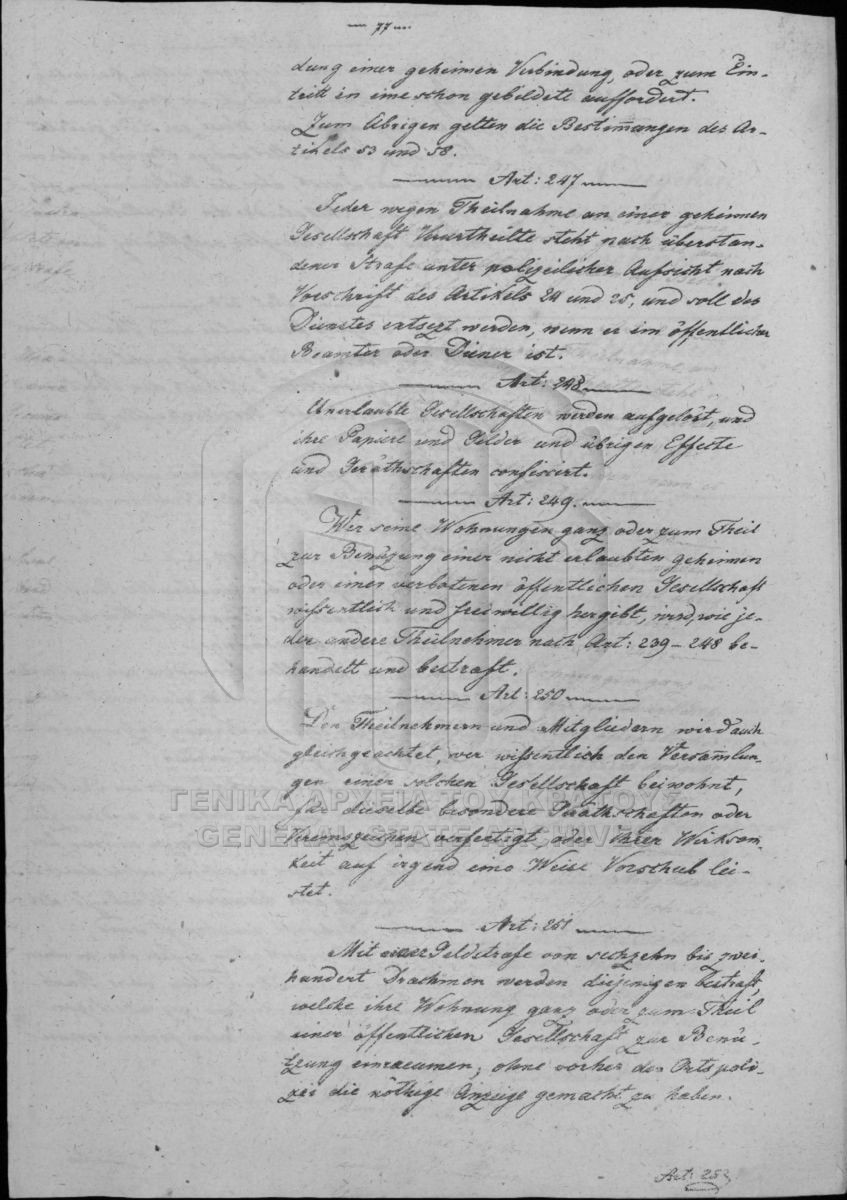 — 77 —
dung einer geheimen Verbindung, oder zum Ein-
tritt in eine schon gebildete auffordert.
Zum Übrigen gelten die Bestim̄ungen des Ar-
tikels 53 und 58.
Art: 247
Jeder wegen Theilnahme an einer geheimen
Gesellschaft Verurtheilte steht nach überstan-
dener Strafe unter polizeilicher Aufsicht nach
Vorschrift des Artikels 24 und 25, und soll des
Dienstes entsezt werden, wenn er im öffentlicher
Beamter oder Diener ist.
Art: 248
Unerlaubte Gesellschaften werden aufgelöst, und
ihre Papiere und Gelder und übrigen Effecte
und Geräthschaften confiscirt.
Art: 249.
Wer seine Wohnungen ganz oder zum Theil
zur Benüzung einer nicht erlaubten geheimen
oder einer verbotenen öffentlichen Gesellschaft
wissentlich und freiwillig hergibt, wird, wie je-
der andere Theilnehmer nach Art: 239 – 248 be-
handelt und bestraft.
Art: 250
Den Theilnehmern und Mitgliedern wird auch
gleichgeachtet, wer wissentlich den Versam̄lun-
gen einer solchen Gesellschaft beiwohnt,
für dieselbe besondere Geräthschaften oder
verfertigt oder ihrer Wirksam-
keit auf irgend eine Weise Vorschub lei-
stet.
Art: 251
Mit einer Geldstrafe von sechzehn bis zwei-
hundert Drachmen werden diejenigen bestraft,
welche ihre Wohnung ganz oder zum Theil
einer öffentlichen Gesellschaft zur Benü-
tzung einraeumen, ohne vorher der Ortspoli-
zei die nöthige Anzeige gemacht zu haben.
Art: 252
ΓΕΝΙΚΑ ΑΡΧΕΙΑ ΤΟΥ ΚΡΑΤΟΥΣ
GENERAL STATE ARCHIVES